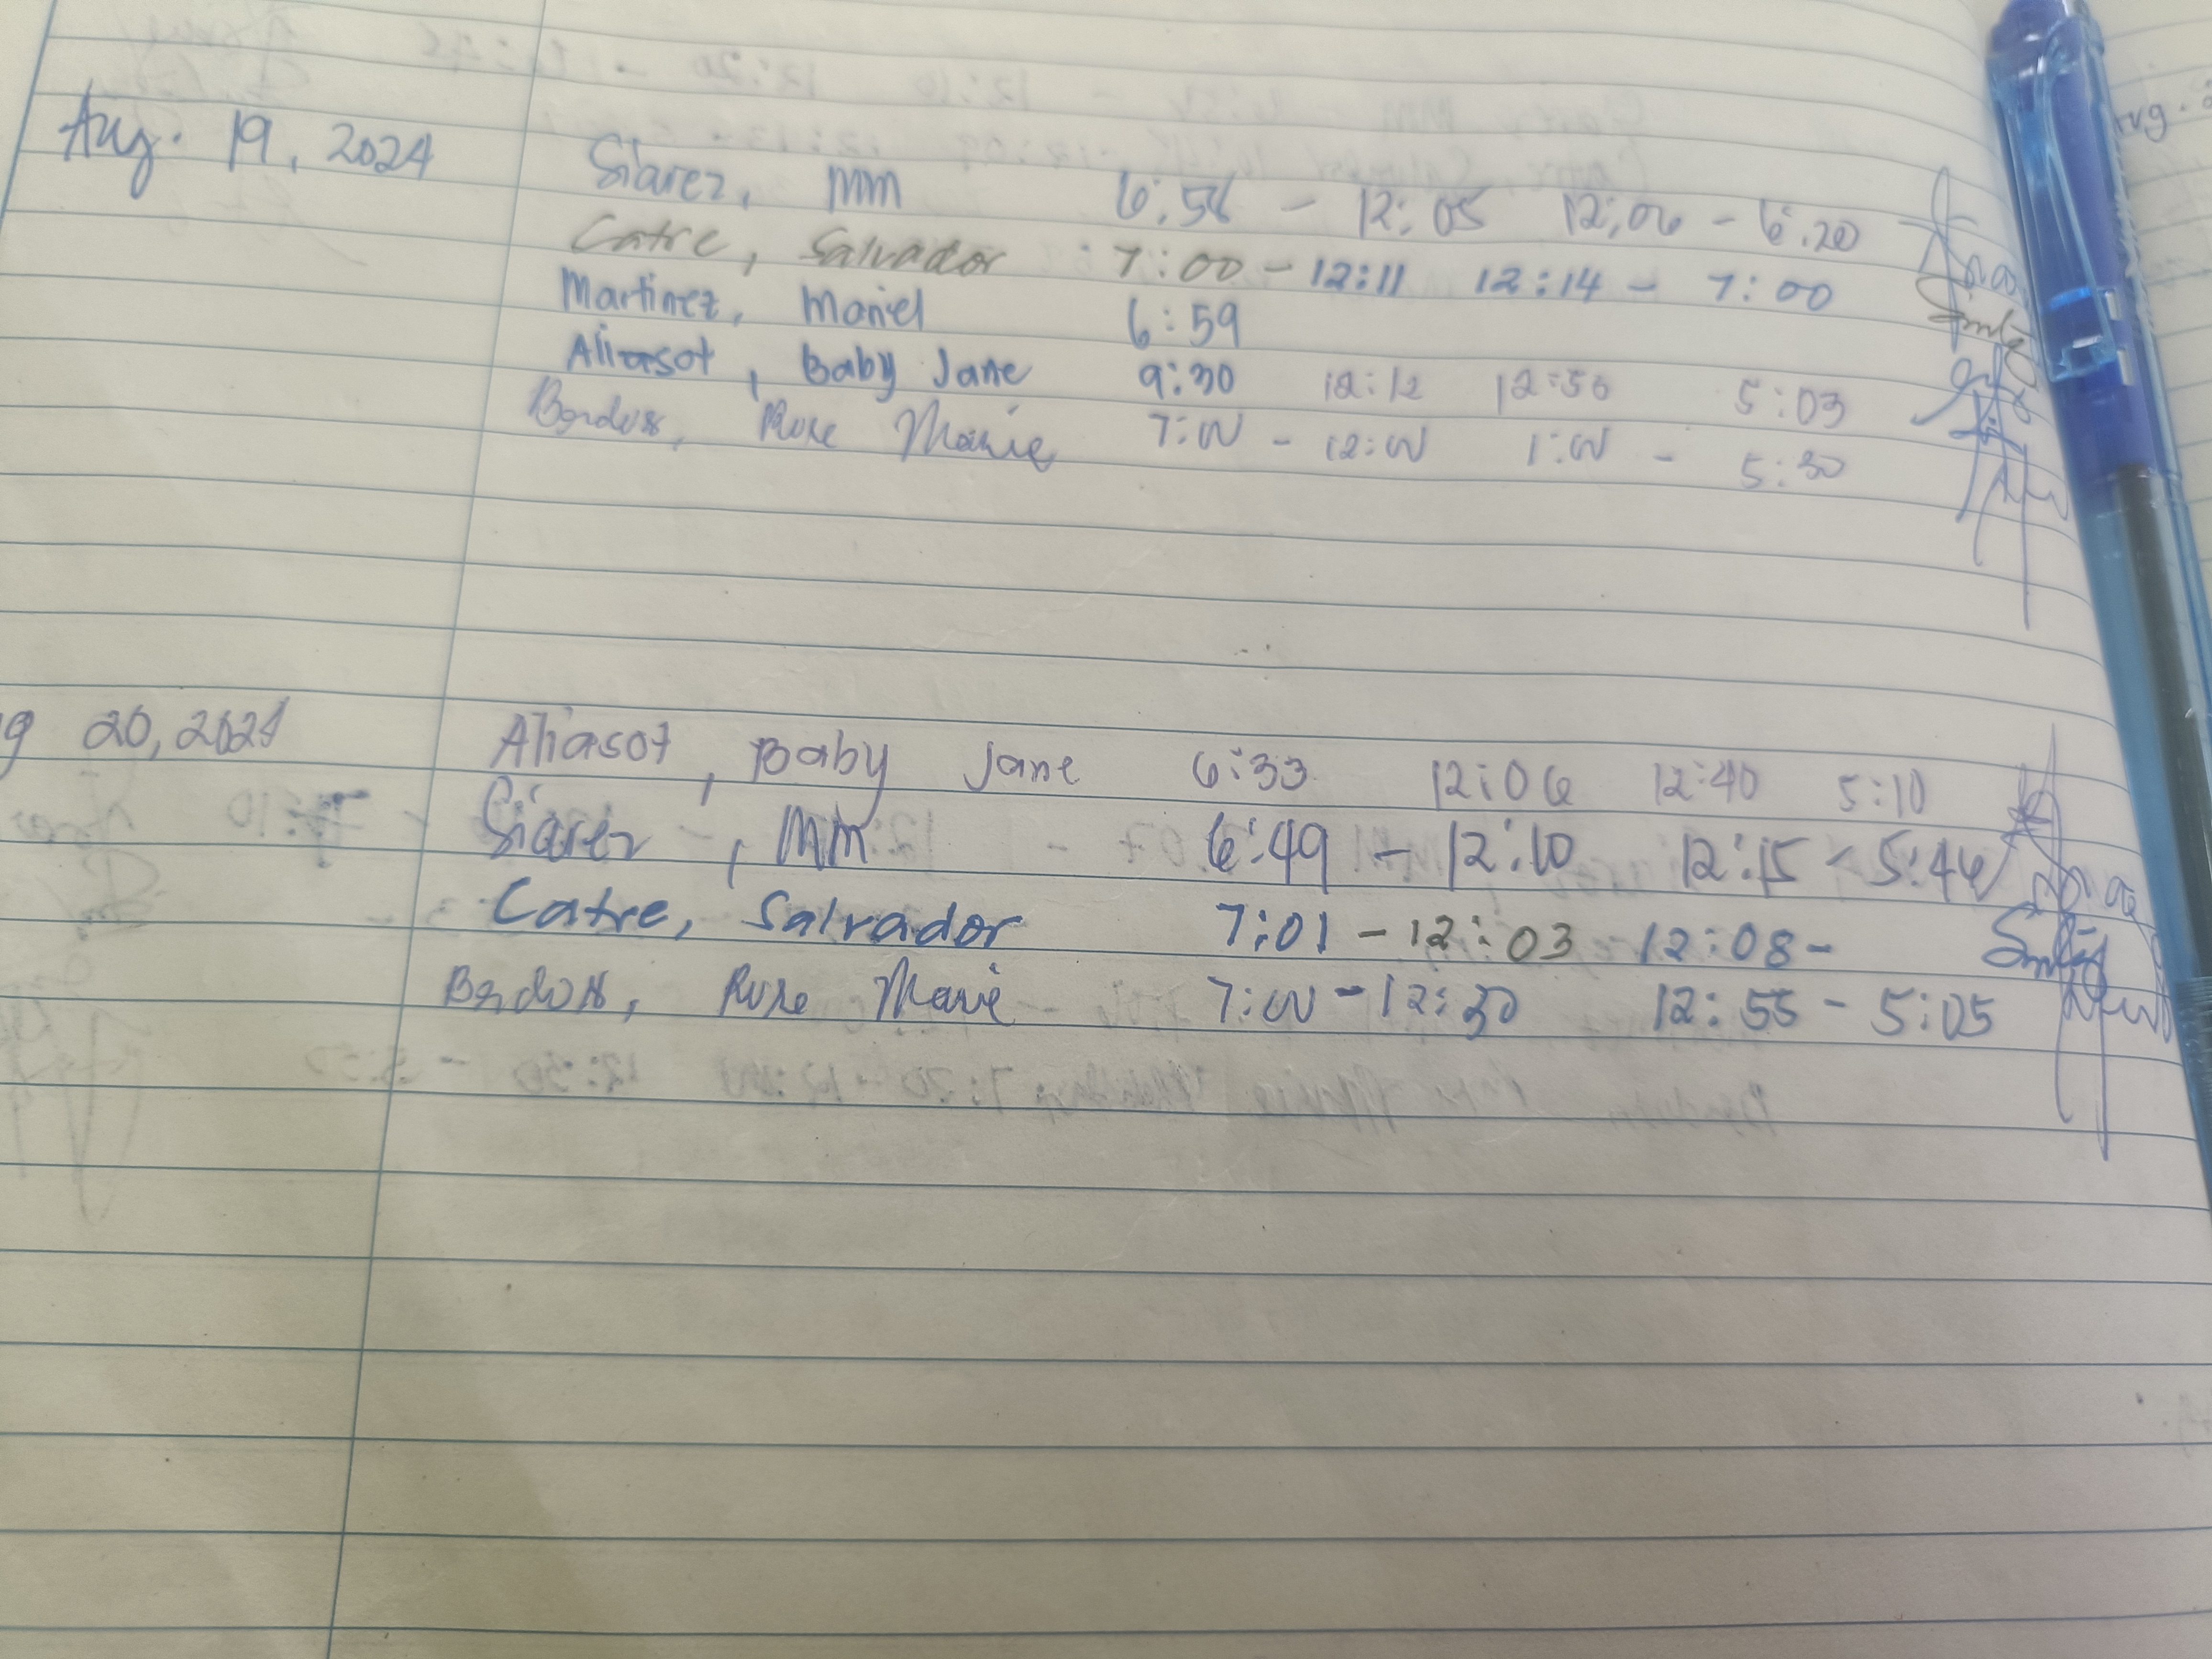 Aug. 19, 2024 Siarez, MM 6:56 - 12:05 12:06 - 6:20
Catre, Salvador 7:00 - 12:11 12:14 - 7:00
Martinez, Mariel 6:59
Aliasot, Baby Jane 9:30 12:12 12:50 5:03
Rose Marie 7:00 - 12:00 1:00 - 5:30
20, 2024 Aliasot, Baby Jane 6:33 12:06 12:40 5:10
Siarez, MM 6:49 - 12:10 12:15 - 5:46
Catre, Salvador 7:01 - 12:03 12:08 -
Rose Marie 7:00 - 12:30 12:55 - 5:05